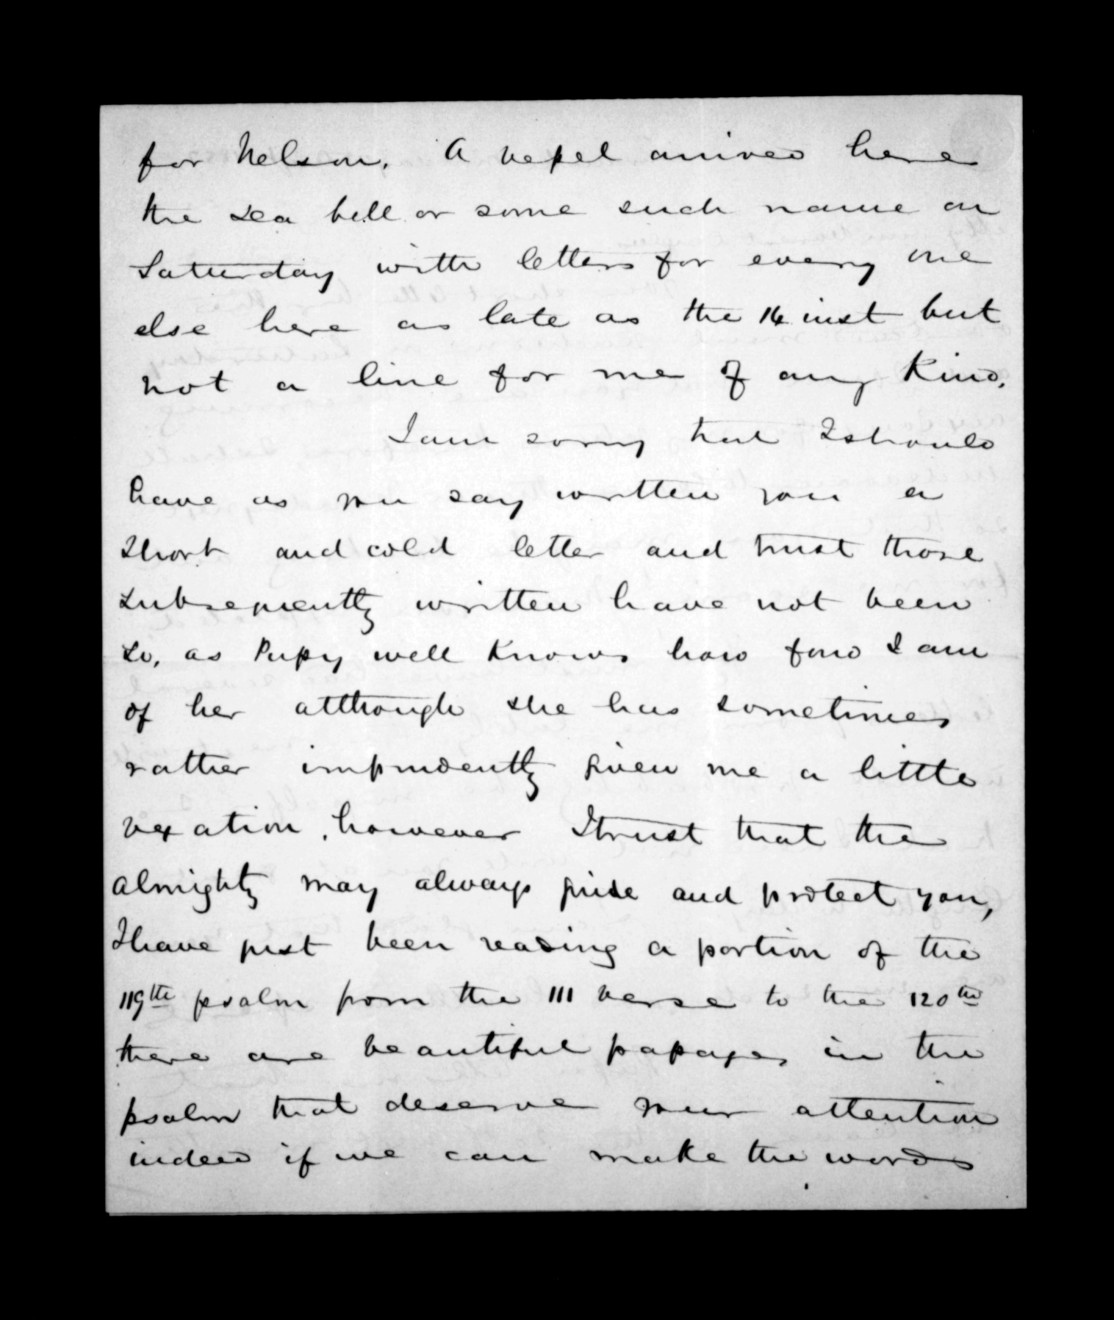 for Nelson. A vessel arrived here
the Sea bell or some such name on
Saturday with letters for every one
else here as late as the 14 inst but
not a line for me of any kind.
I am sorry that I should
have as you say written you a
short and cold letter and trust those
subsequently written have not been
so, as Pussy well knows how fond I am
of her although she has sometimes
rather imprudently given me a little
vexation, however I trust that the
Almighty may always guide and protect you,
I have just been reading a portion of the
119th psalm from the 111 verse to the 120th
there are beautiful passages in the
psalm that deserve your attention
indeed if we can make the words